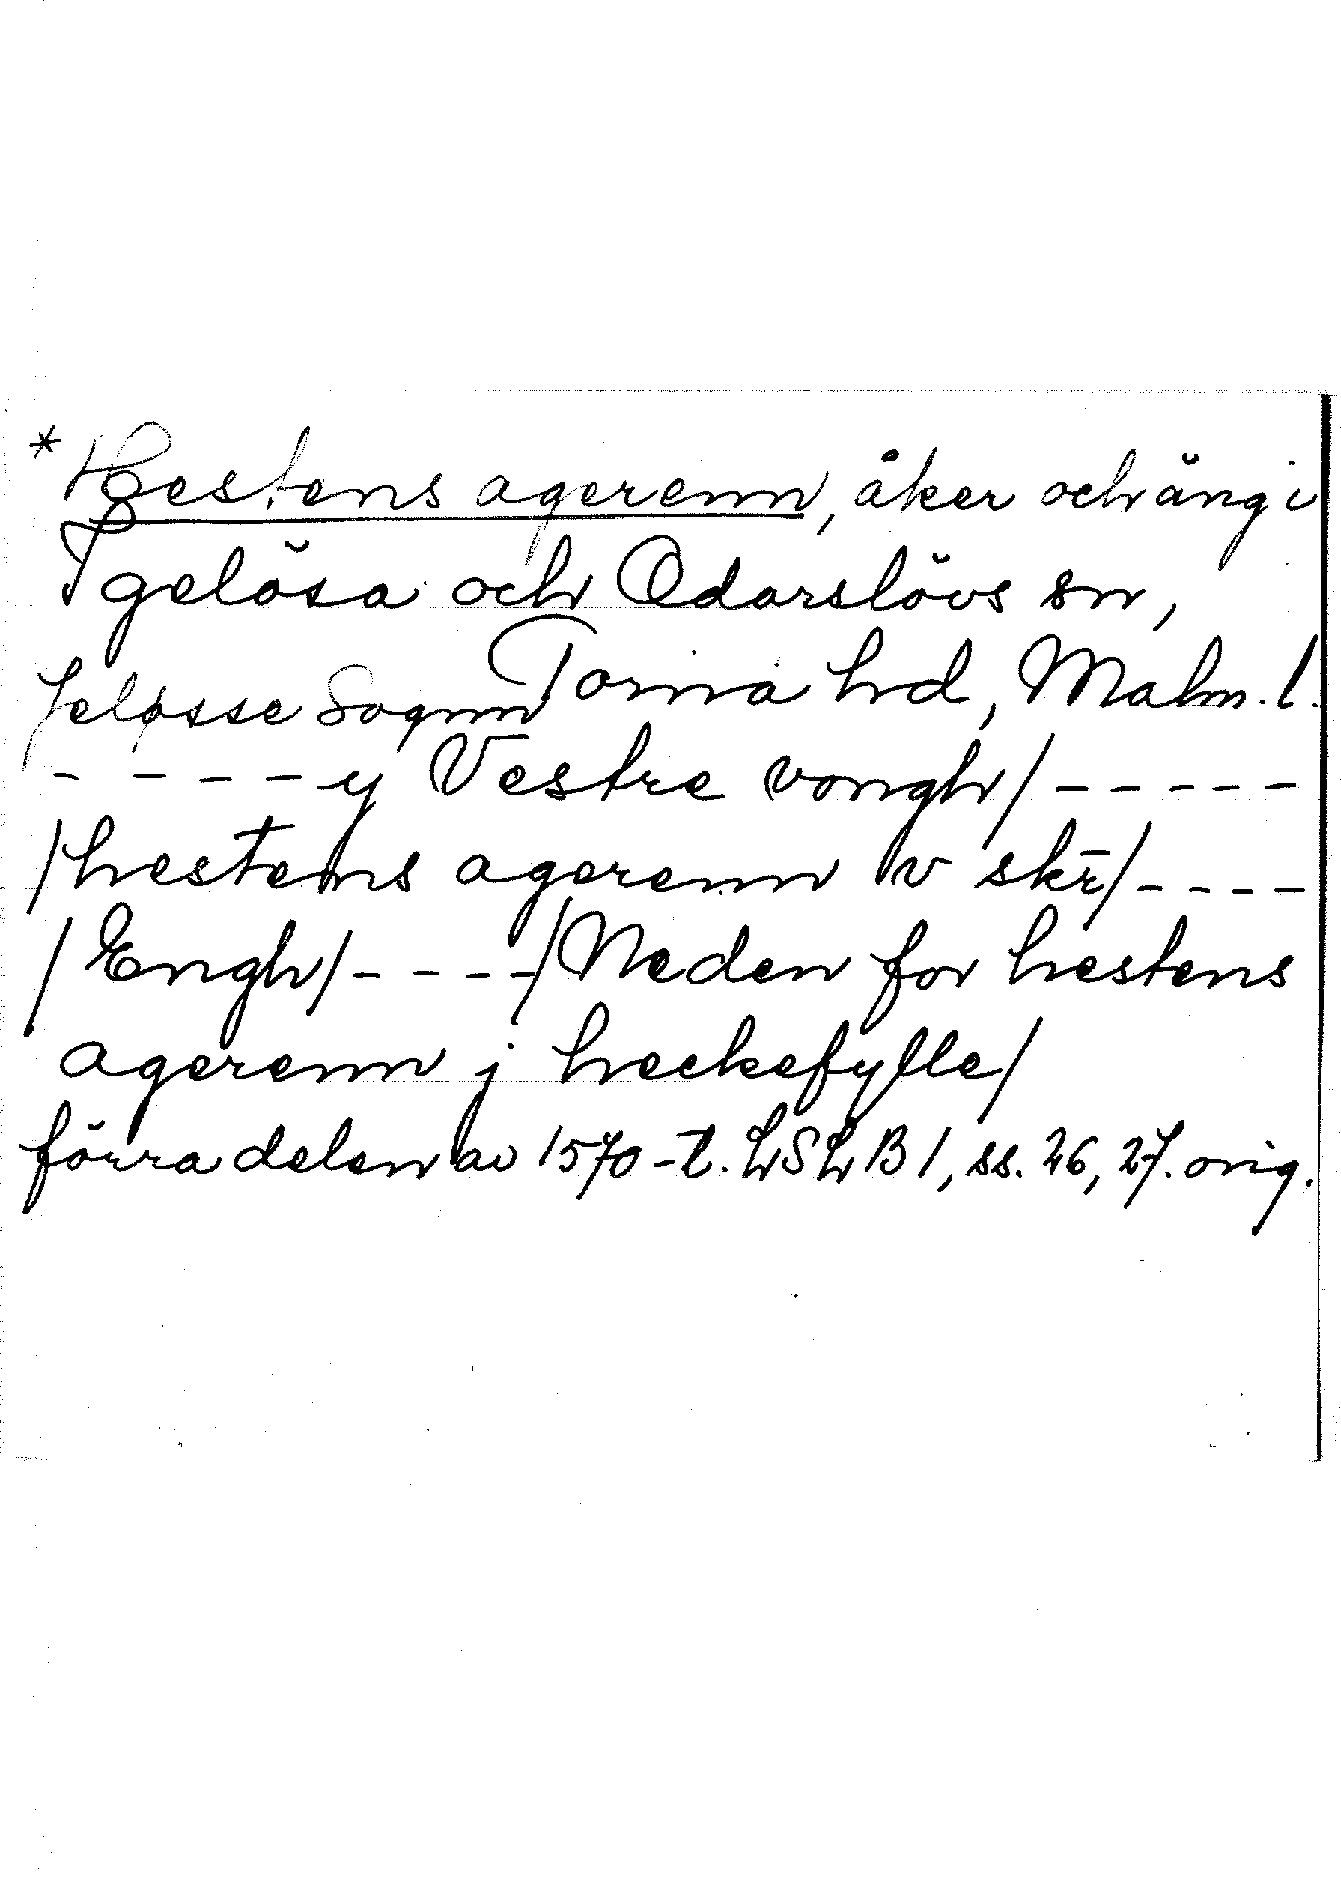 *Hestens agerenn, åker och äng i
Igelösa och Odarslövs sn,
Torna hd, Malm. l.
Jeløsse Sognn
- - - - y Vestre vongh/ - - - - -
/hestens agerenn v skr̄/ - - - -
/Engh/ - - - - /Neden for hestens
agerenn j heckefylle/
förra delen av 1570-t. LSLB 1, ss. 26, 27. orig.